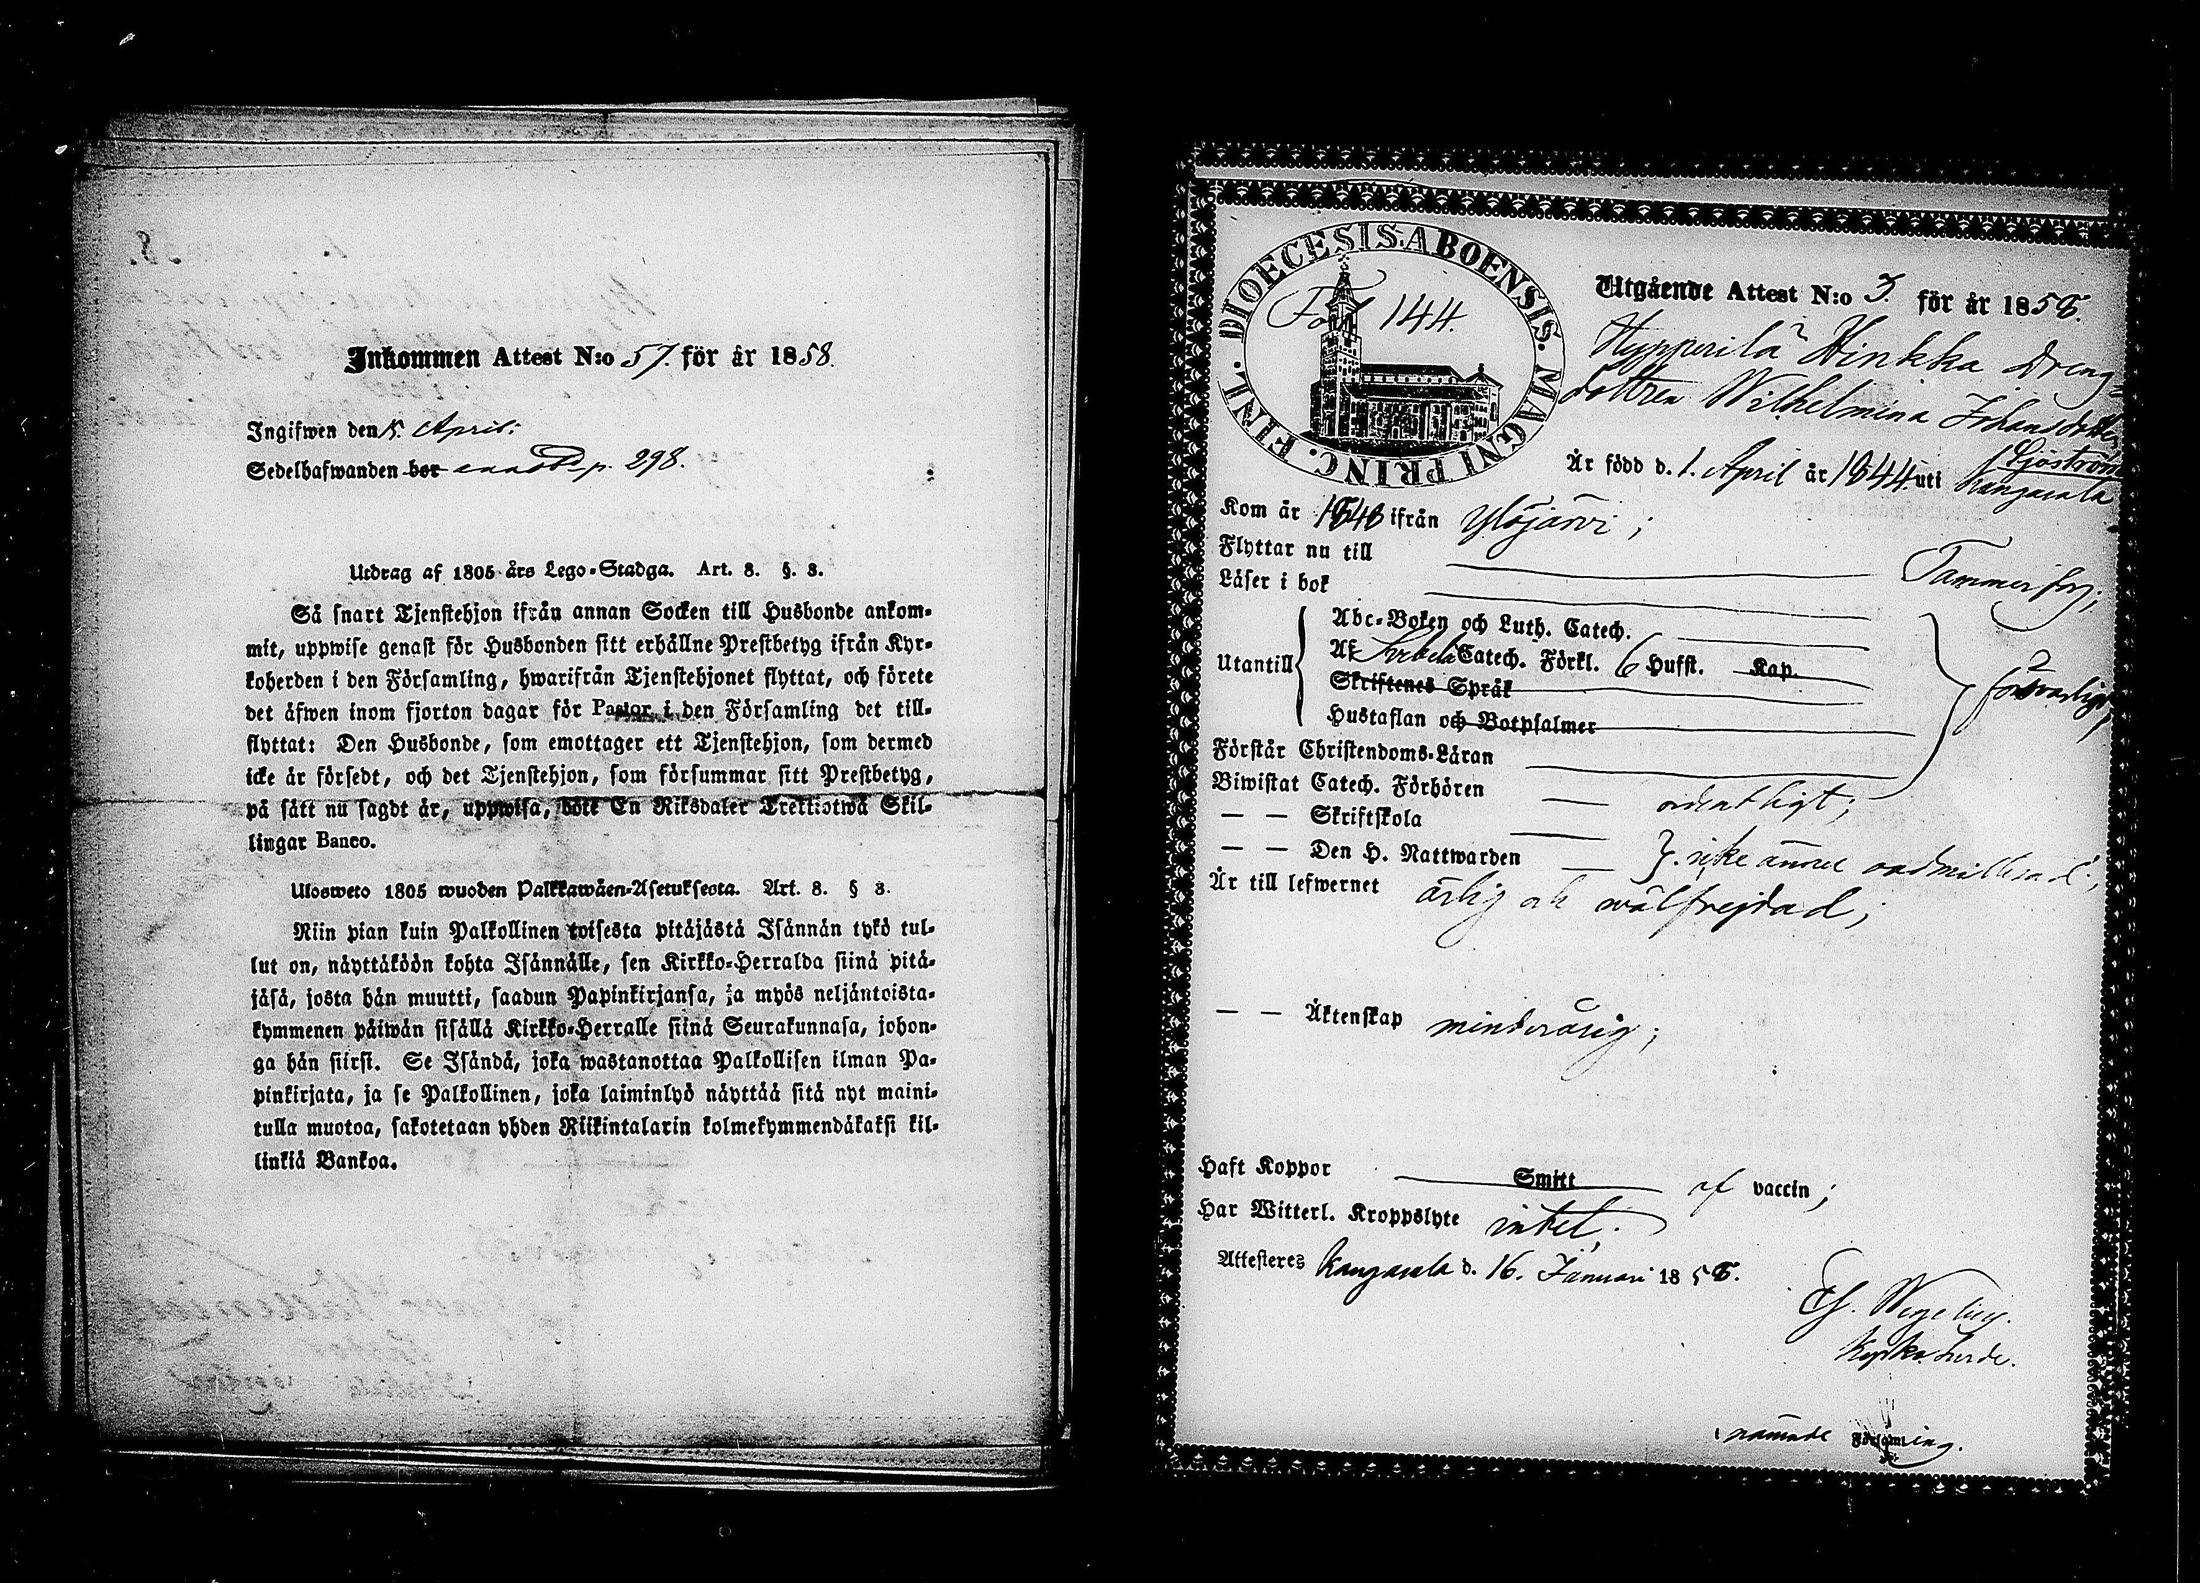 Inkommen Attest N:o 57. för år 1858.
Ingifwen den 5. April.
Sedelhafwanden bor p. 298.
Utdrag af 1805 års Lego-Stadga. Art. 8. §. 3.
Så snart Tjenstehjon ifrån annan Socken till Husbonde ankom-
mit, uppwise genast för Husbonden sitt erhållne Prestbetyg ifrån Kyr-
koherden i den Församling, hwarifrån Tjenstehjonet flyttat, och förete
det äfwen inom fjorton dagar för Pastor i den Församling det till-
flyttat: Den Husbonde, som emottager ett Tjenstehjon, som dermed
icke är försedt, och det Tjenstehjon, som försummar sitt Prestbetyg,
på sätt nu sagdt är, uppwisa, böte En Riksdaler Trettiotwå Skil-
lingar Banco.
Ulosweto 1805 wuoden Palkkawäen-Asetuksesta. Art. 8. § 3.
Niin pian kuin Palkollinen toisesta pitäjästä Isännän tykö tul-
lut on, näyttäköön kohta Isännälle, sen Kirkko-Herralda siinä pitä-
jäsä, josta hän muutti, saadun Papinkirjansa, ja myös neljäntoista-
kymmenen päiwän sisällä Kirkko-Herralle siinä Seurakunnasa, johon-
ga hän siirsi. Se Isändä, joka wastanottaa Palkollisen ilman Pa-
pinkirjata, ja se Palkollinen, joka laiminlyö näyttää sitä nyt maini-
tulla muotoa, sakotetaan yhden Riikintalarin kolmekymmendäkaksi kil-
linkiä Bankoa.
DIOECESIS ABOENSIS. MAGNI PRINC. FINL.
Fol 144.
Utgående Attest N:o 3. för år 1858.
Hypperilä Hinkka Dreng-
dottren Wilhelmina Johansdotter
Sjöström
Är född d. 1. April år 1844 uti Kangasala
Kom år 1848 ifrån Ylöjärvi;
Flyttar nu till Tammerfors;
Läser i bok
Utantill
Abc-Boken och Luth. Catech.
Af Svebeli Catech. Förkl. 6 Hufst. Kap.
Skriftenes Språk
Hustaflan och Botpsalmer
försvarligt;
Förstår Christendoms-Läran
Biwistat Catech. Förhören ordentligt;
— — Skriftskola
— — Den H. Nattwarden icke ännu admitterad;
Är till lefwernet ärlig och wälfrejdad;
— — Äktenskap minderårig;
Haft Koppor Smitt af vaccin;
Har Witterl. Kroppslyte intet;
Attesteres Kangasala d. 16. Januari 1858.
Wegelius.
Kyrkoherde.
nämnde Församling.